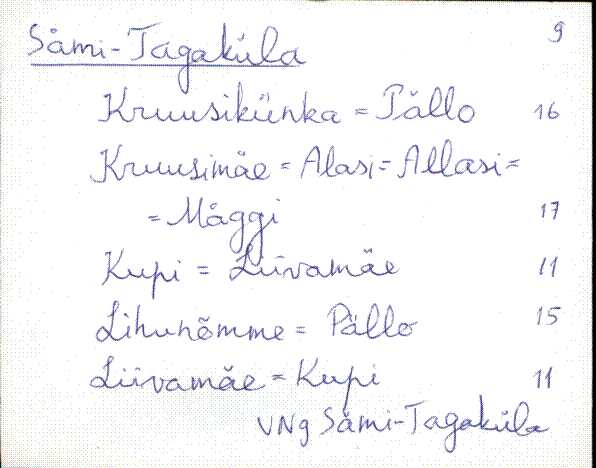 Sämi-Tagaküla 9
Kruusikünka = Pällo 16
Kruusimäe = Alasi = Allasi =
= Mäggi 17
Kupi = Liivamäe 11
Lihunõmme = Pällo 15
Liivamäe = Kupi 11
VNg Sämi-Tagaküla